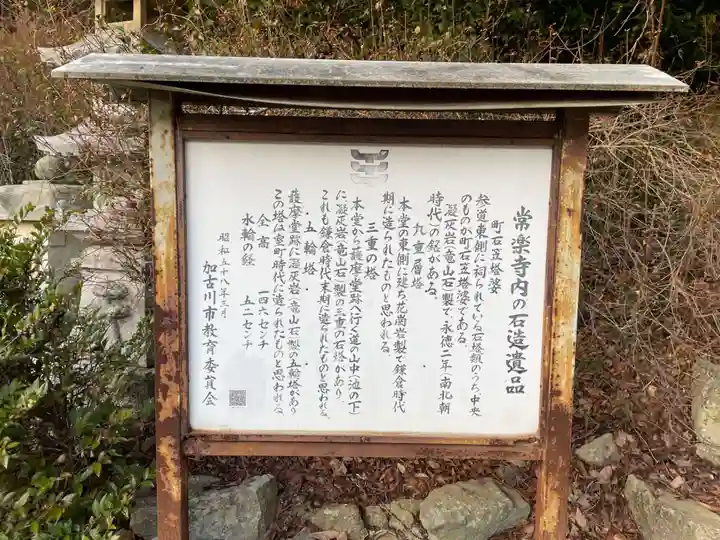 常楽寺内の石造遺品
町石笠塔婆
参道東側に祠られている石塔類のうち中央
のものが町石笠塔婆である。
凝灰岩(竜山石)製で、永徳二年(南北朝
時代)の銘がある。
九重層塔
本堂の東側に建ち花崗岩製で鎌倉時代
期に造られたものと思われる。
三重の塔
本堂から護摩堂跡へ行く道の山中(池の下)
に凝灰岩(竜山石)製の三重の石塔があり
これも鎌倉時代末期に造られたものと思われる。
・五輪塔・
護摩堂跡に凝灰岩(竜山石)製の五輪塔があり
この塔は室町時代に造られたものと思われる。
全高 一四六センチ
水輪の径 五二センチ
昭和五十八年三月
加古川市教育委員会